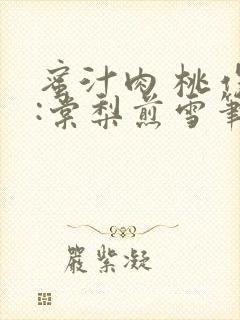 蜜汁肉桃作
:棠梨煎雪筆
嚴紫凝